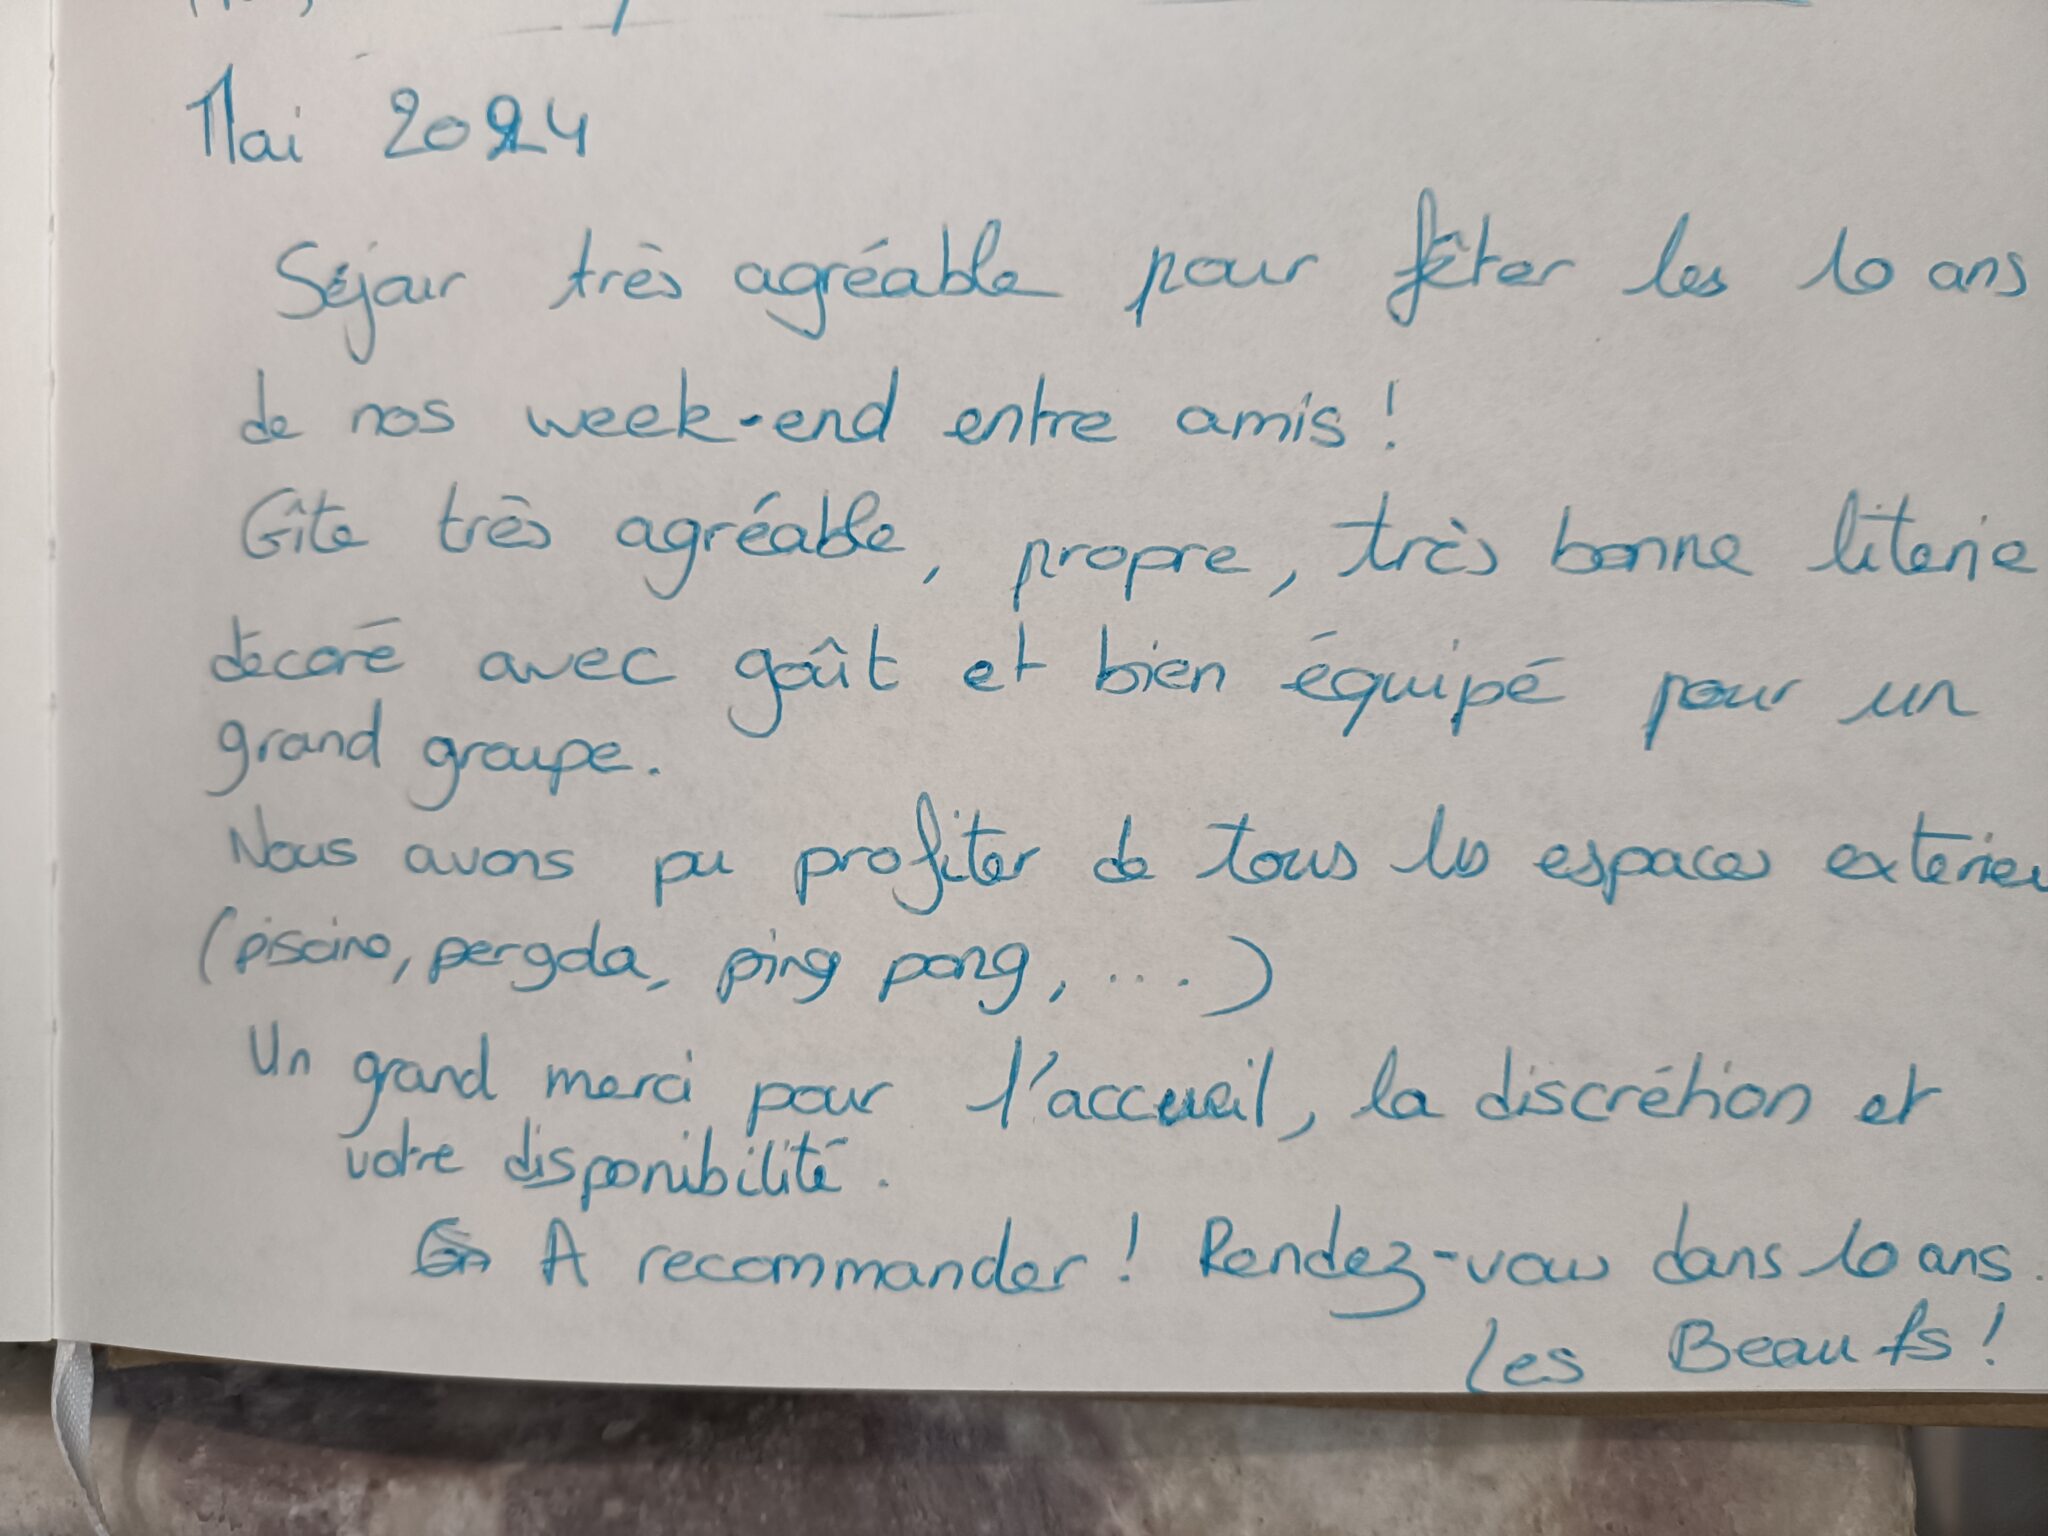 Mai 2024
Séjour très agréable pour fêter les 10 ans
de nos week-end entre amis !
Gîte très agréable, propre, très bonne literie
décoré avec goût et bien équipé pour un
grand groupe.
Nous avons pu profiter de tous les espaces exterieu
(piscine, pergola, ping pong, ....)
Un grand merci pour l'accueil, la discrétion et
votre disponibilité.
A recommander ! Rendez-vous dans 10 ans.
Les Beaufs !